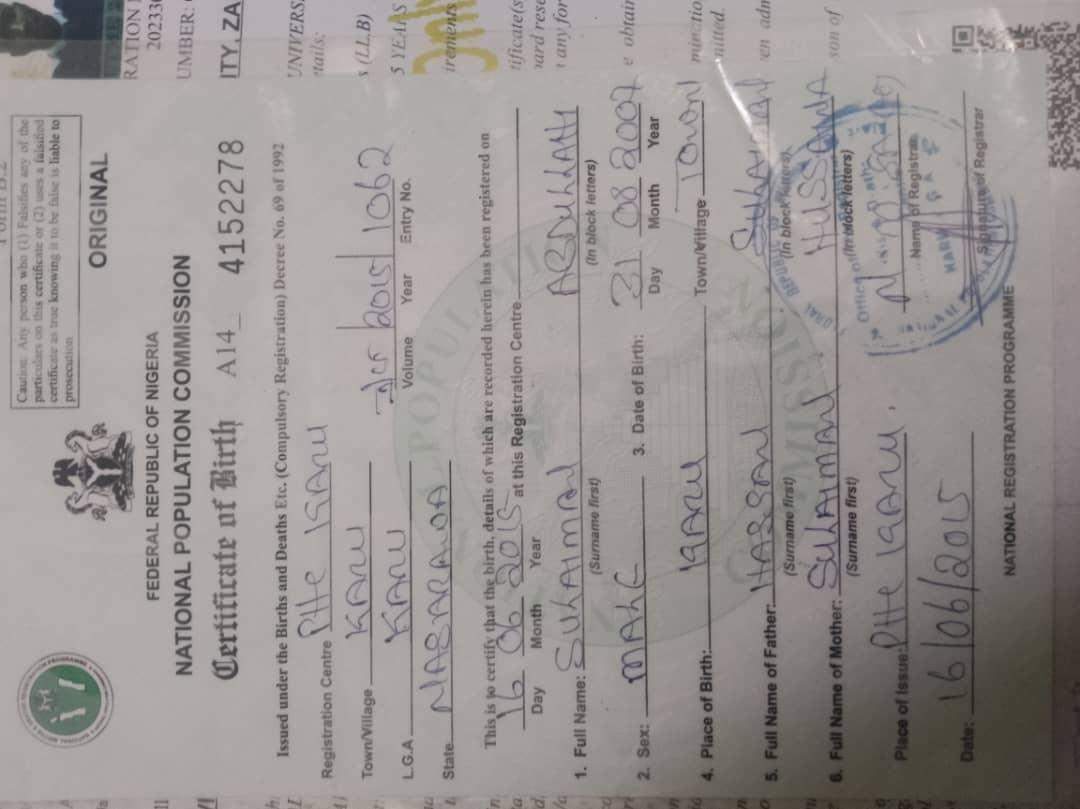 Form B.2
Caution: Any person who (1) Falsifies any of the
particulars on this certificate or (2) uses a falsified
certificate as true knowing it to be false is liable to
prosecution
ORIGINAL
FEDERAL REPUBLIC OF NIGERIA
NATIONAL POPULATION COMMISSION
Certificate of Birth A14_ 4152278
Issued under the Births and Deaths Etc. (Compulsory Registration) Decree No. 69 of 1992
Registration Centre PHC KARU
Town/Village KARU 2015 1062
Volume Year Entry No.
L.G.A KARU
State NASARAWA
This is to certify that the birth, details of which are recorded herein has been registered on
16 06 2015 at this Registration Centre
Day Month Year
1. Full Name: SULAIMAN ABDULLAHI
(Surname first) (In block letters)
2. Sex: MALE 3. Date of Birth: 31 08 2007
Day Month Year
4. Place of Birth: KARU Town/Village
5. Full Name of Father: HASSAN SULAIMAN
(Surname first) (In block letters)
6. Full Name of Mother: SULAIMAN HUSSAINA
(Surname first) (In block letters)
Place of Issue: PHC KARU
Name of Registrar
Date: 16/06/2015
Signature of Registrar
NATIONAL REGISTRATION PROGRAMME
UMBER:
ITY, ZA
(LLB)
5 YEARS
any for
e obtain
son of